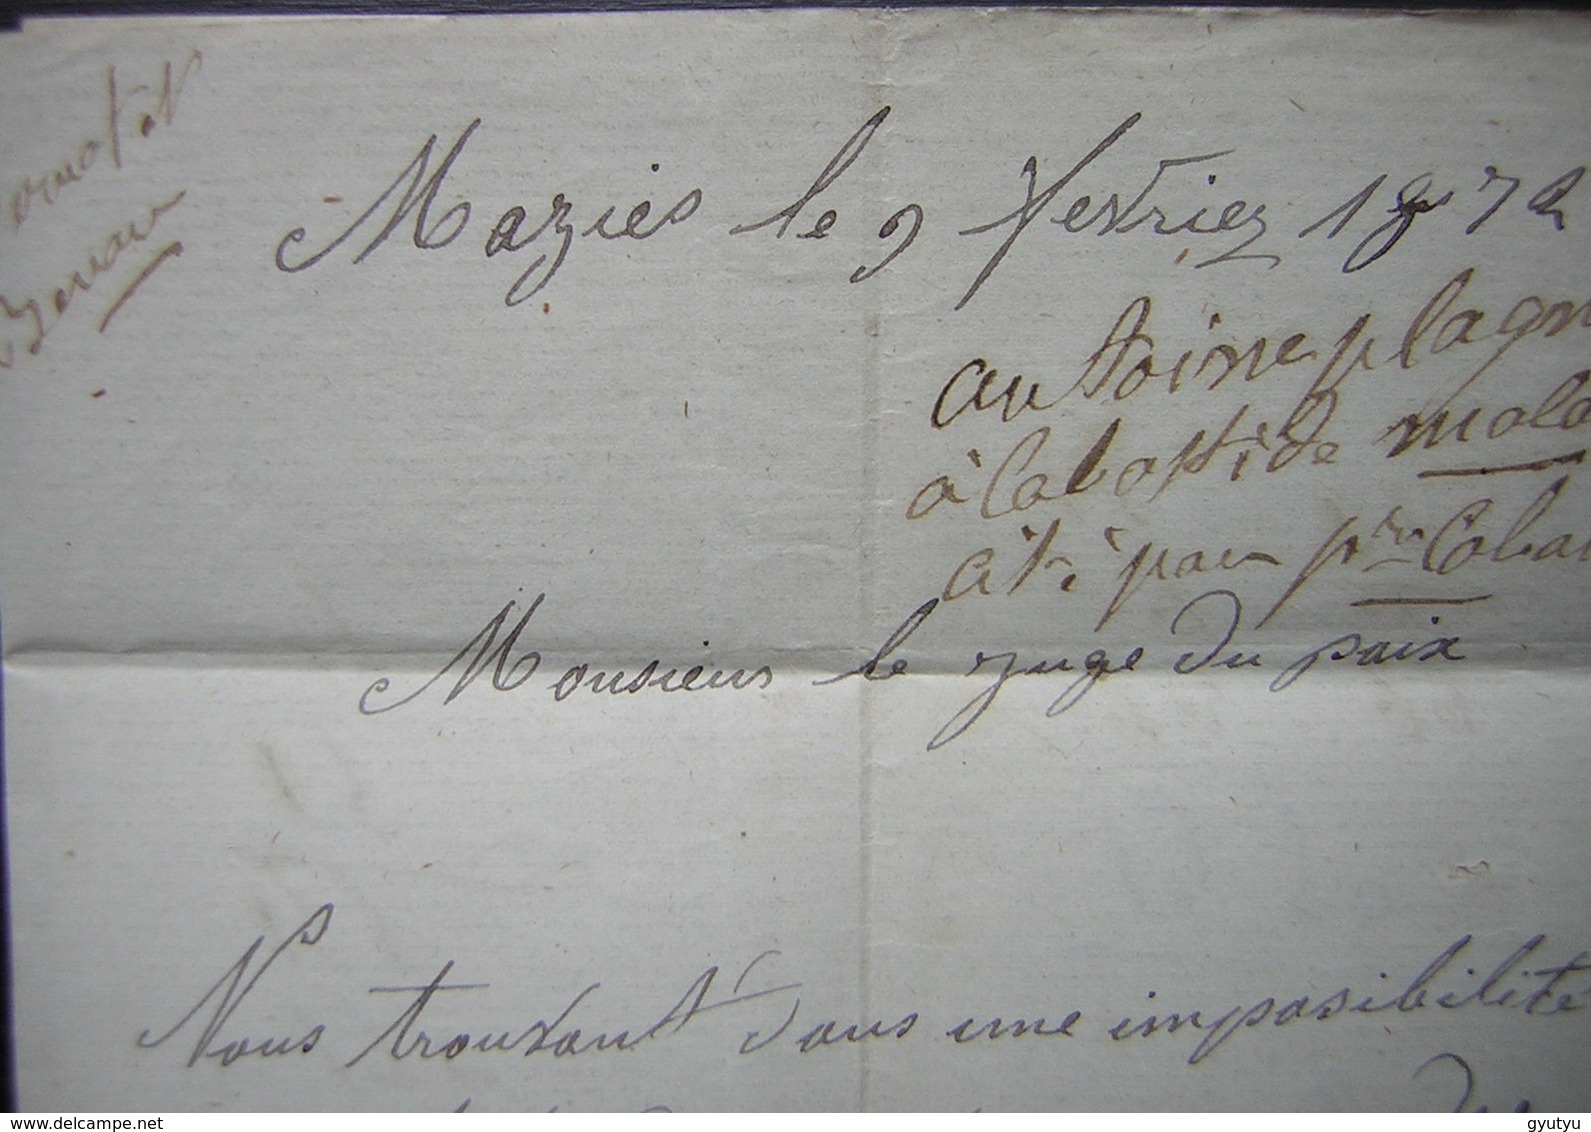 Mazies le 9 fevrier 1872
antoine plagn
à labastide mola
cité par pre Cabar
Monsieur le yuge du paix
Nous trouvant dans une imposibilité
www.delcampe.net
gyutyu